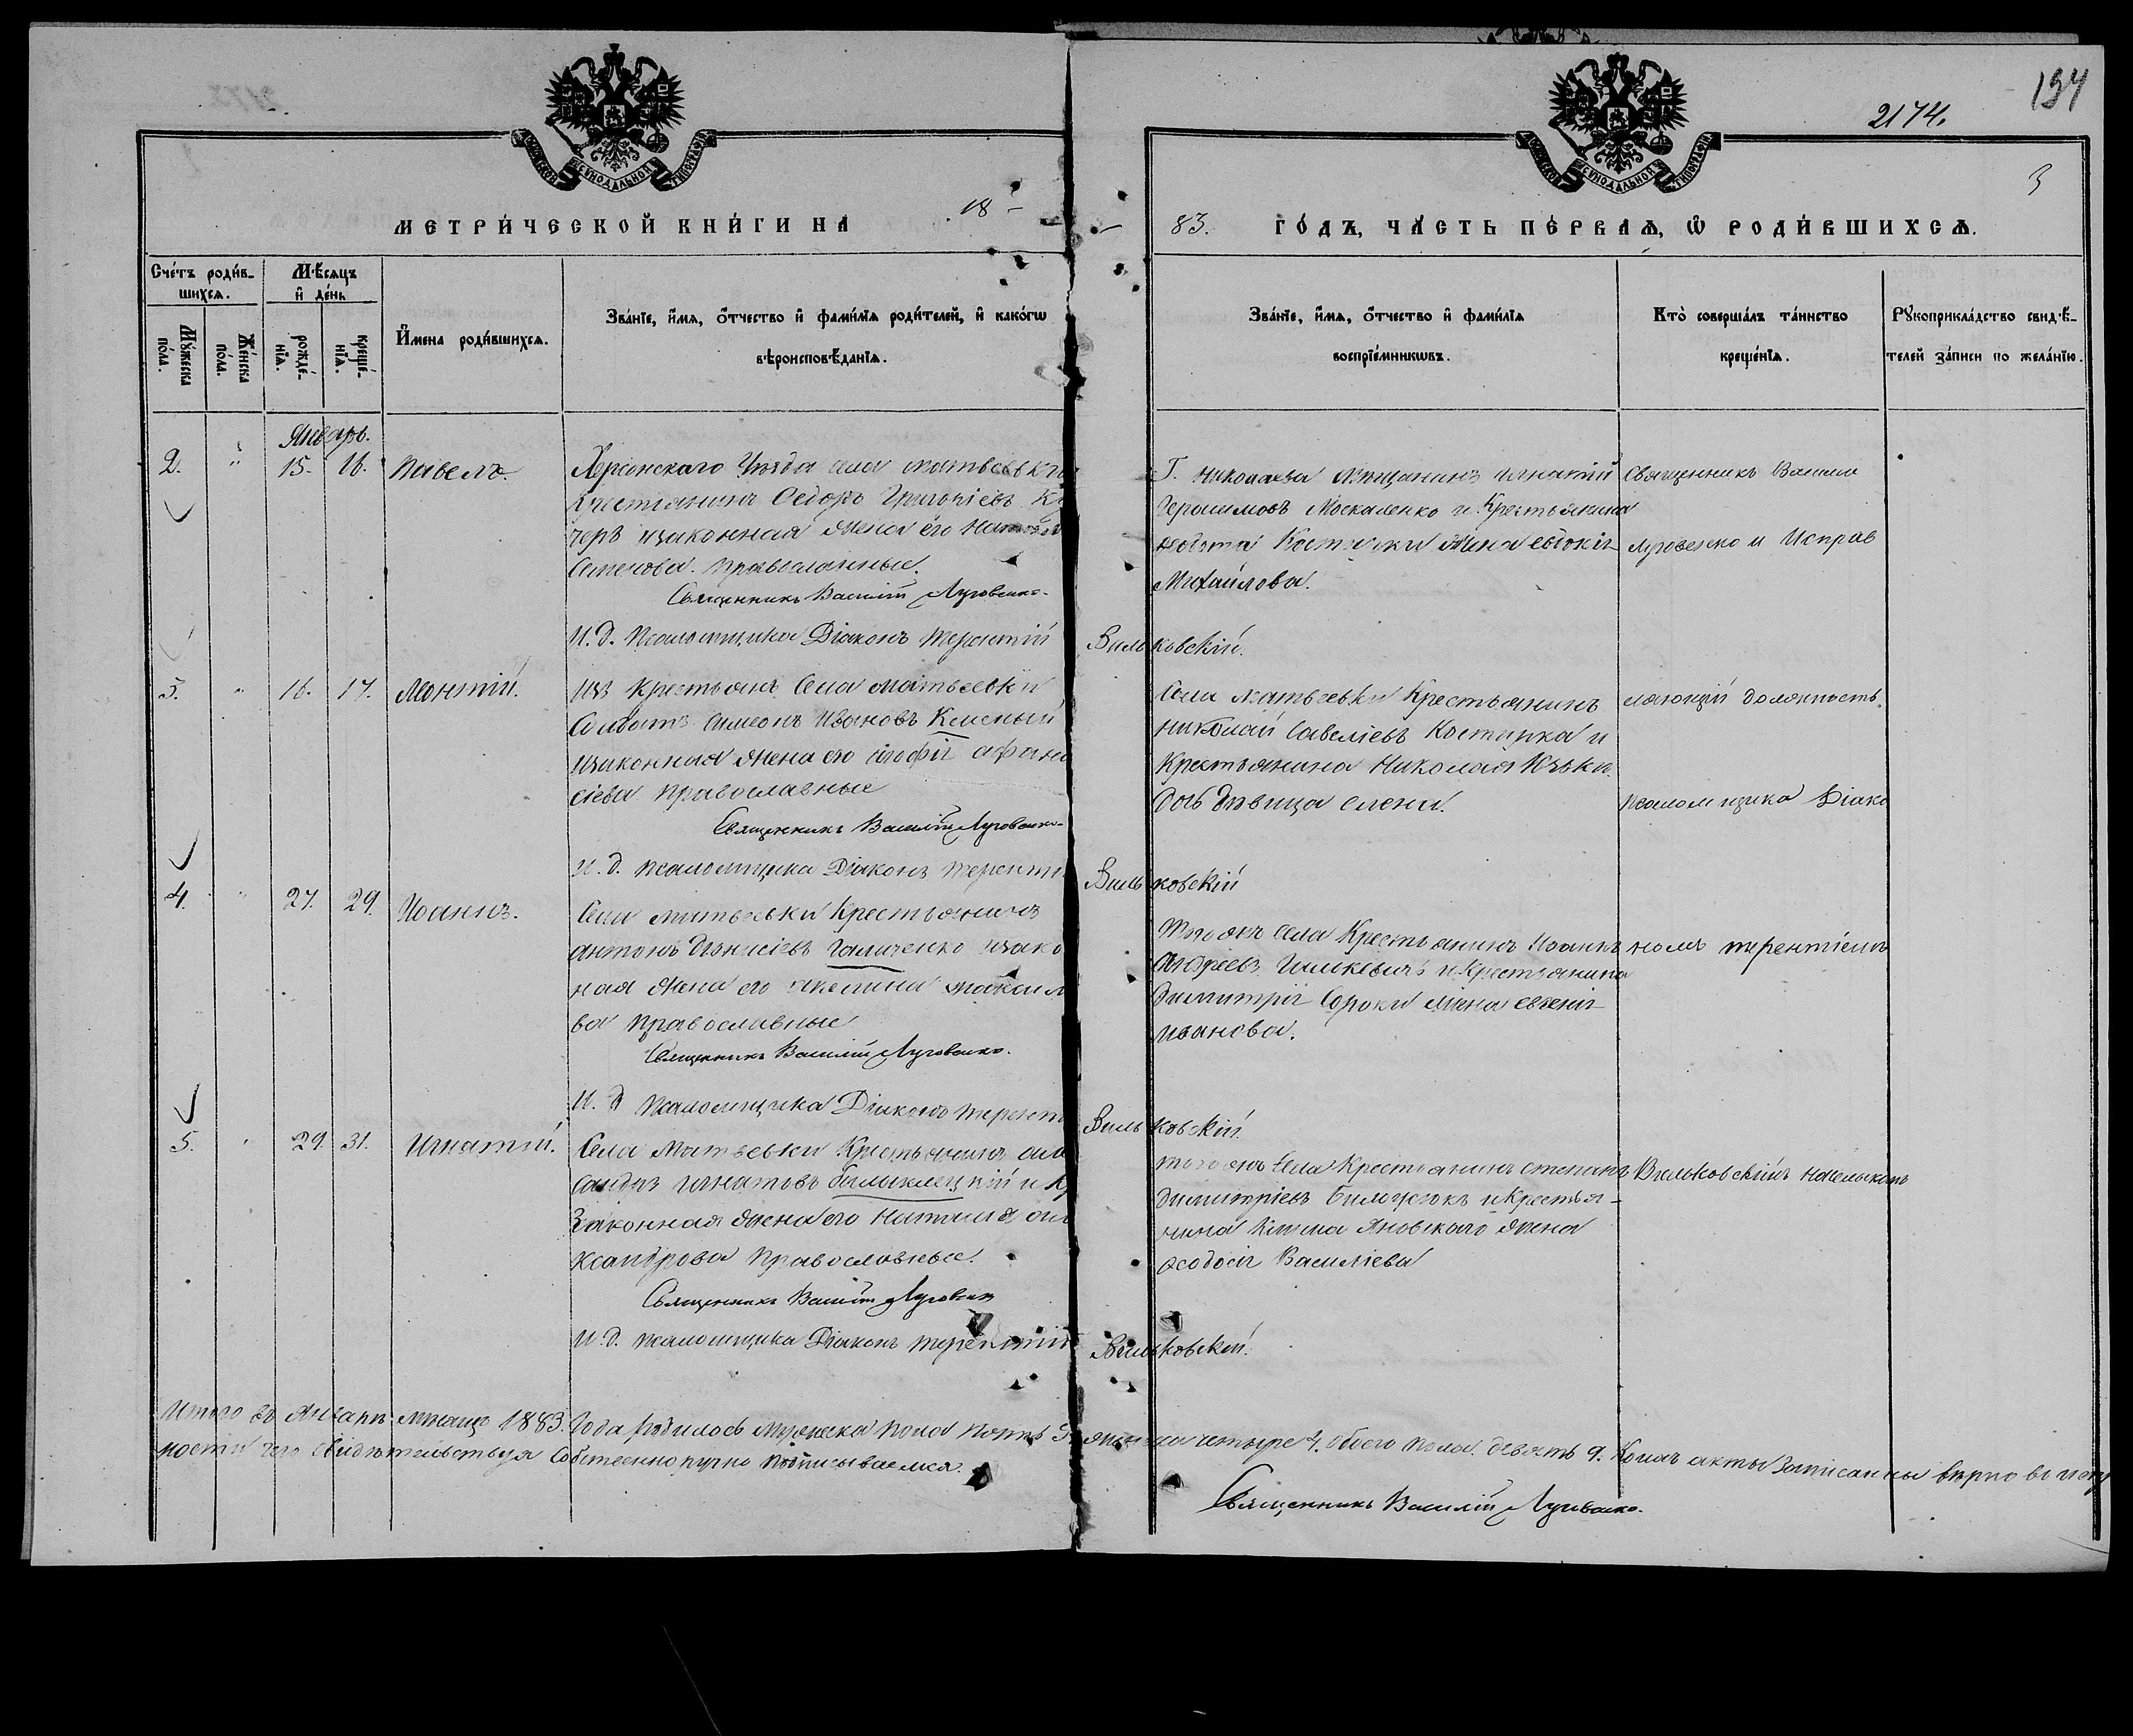 194
2174.
3
МОСКОВСКОЙ СѴНОДАЛЬНОЙ ТИПОГРАФІИ
МОСКОВСКОЙ СѴНОДАЛЬНОЙ ТИПОГРАФІИ
МЕТРИ́ЧЕСКОЙ КНИ́ГИ НА 18
83. ГО́ДЪ, ЧА́СТЬ ПЕ́РВАѦ, Ѡ РОДИ́ВШИХСѦ.
Сче́тъ роди́в-
шихсѧ.
Мѣ́сѧцъ
и҆ де́нь
Мꙋ́жеска
по́ла.
Же́нска
по́ла.
рожде́-
нїѧ.
креще́-
нїѧ.
И҆́мена роди́вшихсѧ.
Зва́нїе, и҆́мѧ, ѻ҆́тчество и҆ фами́лїѧ роди́телей, и҆ како́гѡ
вѣроисповѣ́данїѧ.
Зва́нїе, и҆́мѧ, ѻ҆́тчество и҆ фами́лїѧ
воспрїе́мникѡвъ.
Кто̀ соверша́лъ та́инство
креще́нїѧ.
Рꙋкоприкла́дство свидѣ́-
телей за́писи по жела́нїю.
Январь.
2. " 15. 16. Павелъ.
Херсонскаго Уѣзда села Матвѣевки
крестьянинъ Ѳедоръ Григоріевъ
черъ изаконная жена его
Семенова. православные.
Священникъ Василій Луговенко.
И. д. Псаломщика Діаконъ Терентій Вильковскій.
Г. Николаева мѣщанинъ Игнатій
Герасимовъ Москаленко и Крестьянина
жена Евдокія
Михайлова.
Священникъ Василій
Луговенко и Исправ
3. " 16. 17. Леонтій.
Изъ крестьянъ Села Матвѣевки
Солдатъ Симеонъ Ивановъ
изаконная жена его Агафія Афана
сіева православные
Священникъ Василій Луговенко.
И. д. псаломщика Діаконъ Терентій Вильковскій
Села Матвѣевки Крестьянинъ
Николай Савеліевъ Костырка и
Крестьянина Николая
дочь дѣвица Елена.
ляющій должность
псаломщика Діако
4. " 27. 29. Иоаннъ.
Села Матвѣевки Крестьянинъ
Антонъ Діонисіевъ Галиченко изако
ная жена его Акелина Максимо
ва православные
Священникъ Василій Луговенко.
И. д псаломщика Діаконъ Терентій Вильковскій.
Тогожъ села Крестьянинъ Иоаннъ
Андреевъ и Крестьянина
Димитрія Сороки жена Евгенія
Иванова.
номъ Терентіемъ
5. " 29. 31. Игнатій.
Села Матвѣевки Крестьянинъ Алек
сандръ Игнатовъ
Законная жена его Наталія Але
ксандрова Православные.
Священникъ Василій Луговенко
И. д. псаломщика Діаконъ Терентій Вильковскій.
тогожъ Села Крестьянинъ Степанъ
Димитріевъ и Крестья-
нина Климa Яновскаго жена
Ѳеодосія Василіева
Вильковскимъ
Итого въ Январѣ мѣсяцѣ 1883. Года родилось мужеска пола пять 5. женска четыре 4. обоего пола девять 9. Коихъ акты записанны вѣрно въ
ности чего свидѣтельствуя Собственноручно подписываемся.
Священникъ Василій Луговенко.